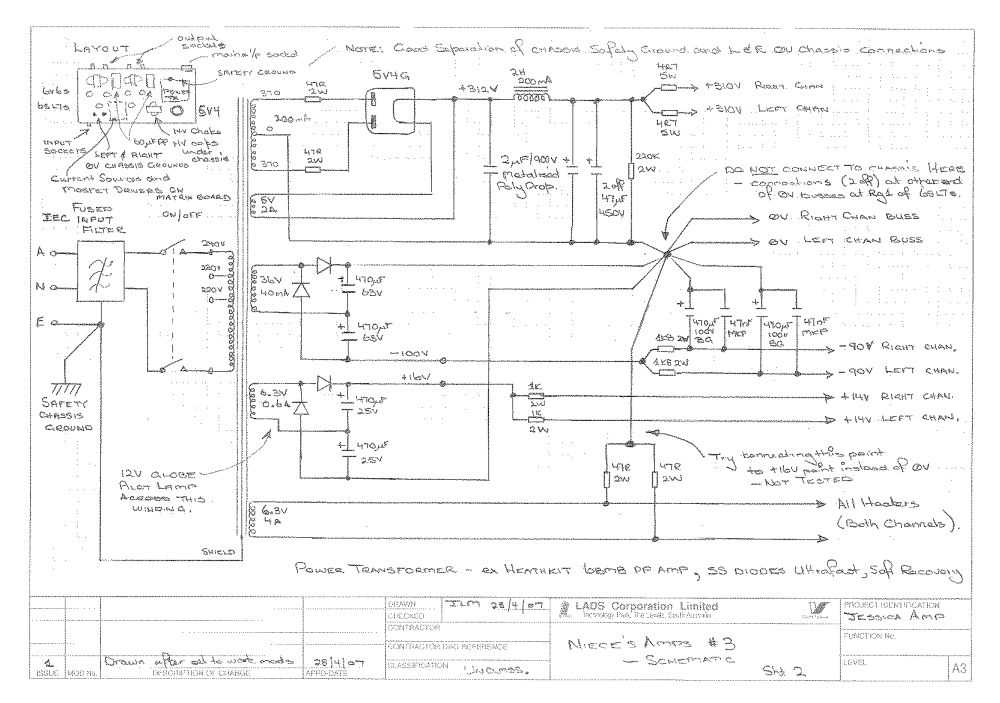 LAYOUT
output sockets
mains i/p socket
SAFETY GROUND
NOTE: Good Separation of CHASSIS Safety Ground and L & R 0V Chassis Connections
6V6s
6SL7s
POWER TX
5V4
INPUT SOCKETS
60µF PP
HV Choke
HV caps under chassis
LEFT & RIGHT 0V CHASSIS GROUNDS
Current Sources and MOSFET DRIVERS ON MATRIX BOARD
370
200mA
0
370
47R 2W
47R 2W
5V4G
+312V
2H 200mA
4R7 5W
+310V RIGHT CHAN
+310V LEFT CHAN
4R7 5W
5V 2A
2µF/900V Metalised Poly Prop.
2 off 47µF 450V
220K 2W
DO NOT CONNECT TO CHASSIS HERE
- connections (2 off) at other end of 0V busses at Rg1 of 6SL7s.
0V RIGHT CHAN BUSS
0V LEFT CHAN BUSS
IEC
FUSED INPUT FILTER
ON/OFF
A
N
E
240V
220V
SAFETY CHASSIS GROUND
36V 40mA
470µF 63V
470µF 63V
-100V
470µF 100V BG
47nF MKP
470µF 100V BG
47nF MKP
1K8 2W
1K8 2W
-90V RIGHT CHAN.
-90V LEFT CHAN.
6.3V 0.6A
+16V
470µF 25V
470µF 25V
1K 2W
1K 2W
+14V RIGHT CHAN.
+14V LEFT CHAN.
12V GLOBE PILOT LAMP ACROSS THIS WINDING.
Try connecting this point to +16V point instead of 0V
- NOT TESTED
47R 2W
47R 2W
6.3V 4A
All Heaters (Both Channels).
SHIELD
POWER TRANSFORMER - ex HEATHKIT DF AMP, SS DIODES Ultrafast, Soft Recovery
DRAWN JLM 28/4/07
CHECKED
CONTRACTOR
CONTRACTOR DRG REFERENCE
CLASSIFICATION UNCLASS.
LADS Corporation Limited
Technology Park, The Levels, South Australia
NIECE'S AMPS #3
- SCHEMATIC
SH. 2
PROJECT IDENTIFICATION
JESSICA AMP
FUNCTION No.
LEVEL
A3
1 Drawn after all to work mods 28/4/07
ISSUE MOD No. DESCRIPTION OF CHANGE APPD-DATE